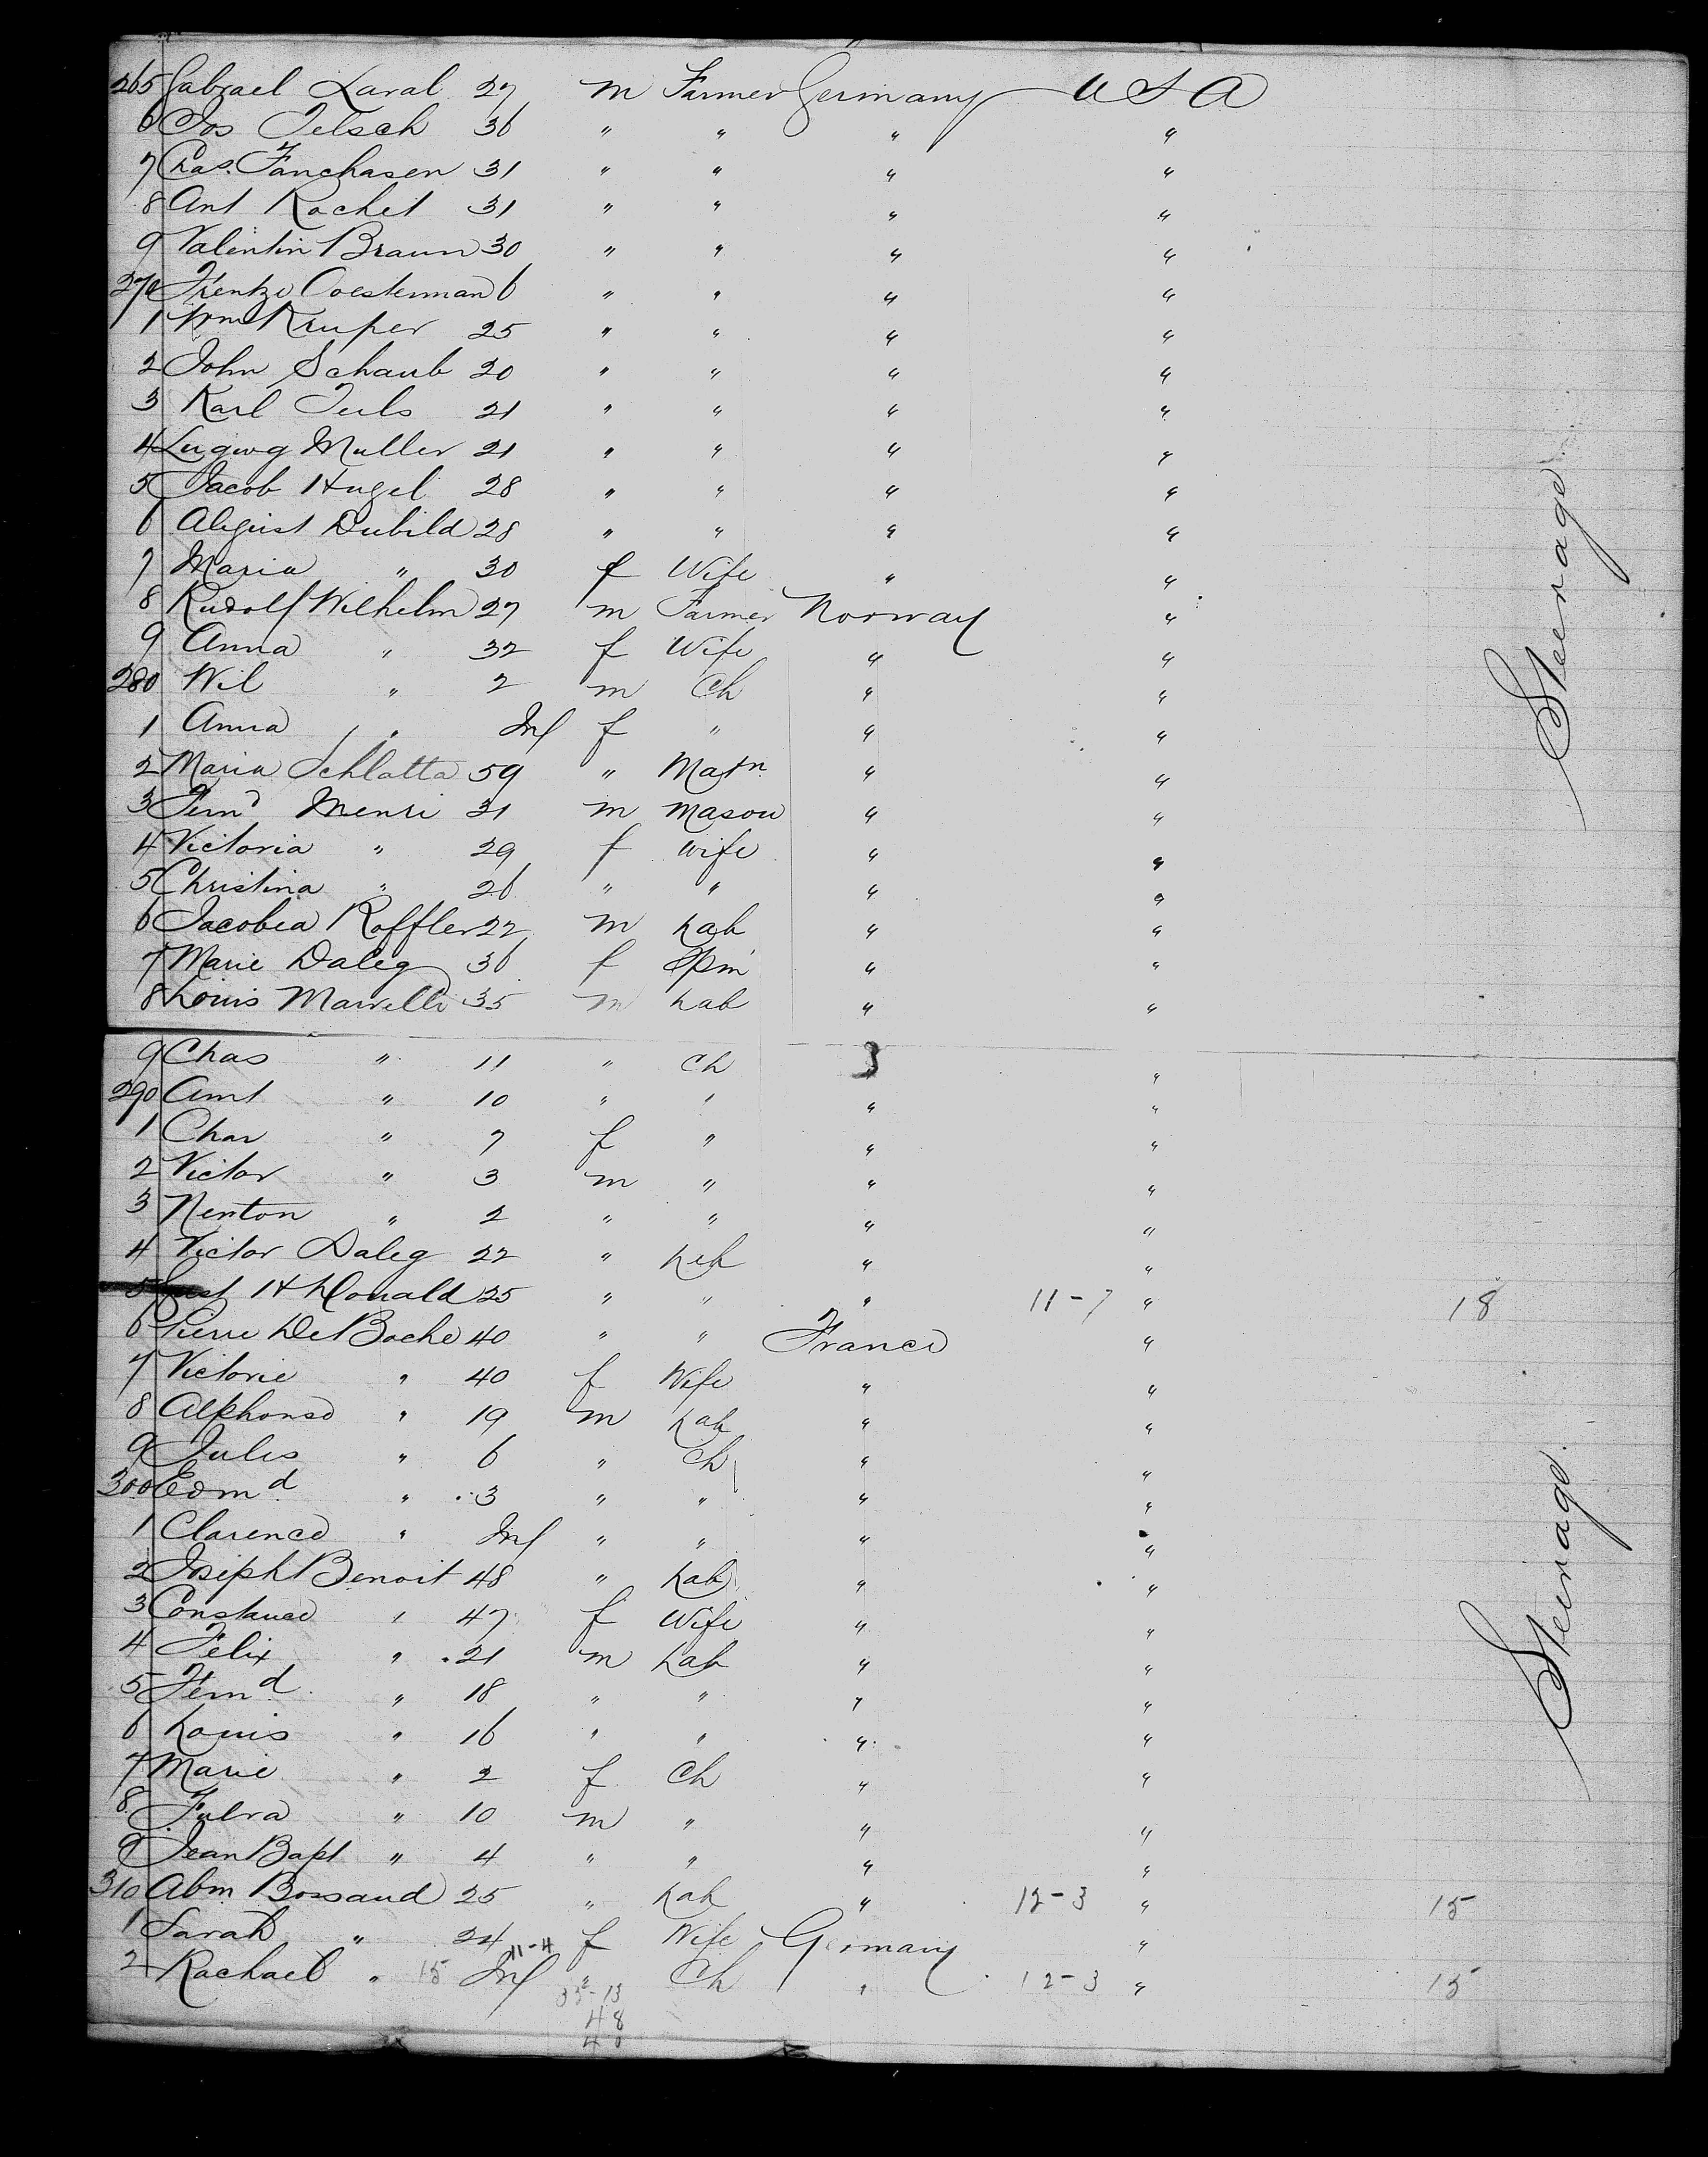 265 Gabrael Laval 27 m Farmer Germany U S A
6 Jos Jelsch 36 " " " "
7 Chas. Fanchasen 31 " " " "
8 Ant Rochet 31 " " " "
9 Valentin Braun 30 " " " "
270 Frentze Coesterman 6 " " " "
1 Wm Kruper 25 " " " "
2 John Schaub 20 " " " "
3 Karl Juls 21 " " " "
4 Lugwg Muller 21 " " " "
5 Jacob Hugel 28 " " " "
6 August Dubild 28 " " " "
7 Maria " 30 f Wife " "
8 Rudolf Wilhelm 27 m Farmer Norway "
9 Anna " 32 f Wife " "
280 Wil " 2 m Ch " "
1 Anna " Inf f " " "
2 Maria Schlatta 59 " Matn " "
3 Fernd Menri 31 m Mason " "
4 Victoria " 29 f Wife " "
5 Christina " 26 " " " "
6 Jacobea Roffler 22 m Lab " "
7 Marie Daleg 36 f Spin " "
8 Louis Marvelli 35 m Lab " "
Steerage
9 Chas " 11 " Ch 3 "
290 Amt " 10 " " " "
1 Char " 7 f " " "
2 Victor " 3 m " " "
3 Nenton " 2 " " " "
4 Victor Daleg 22 " Leb " "
5 H Donald 25 " " " 11-7 " 18
6 Pierre DeBoche 40 " " France "
7 Victorie " 40 f Wife " "
8 Alphonso " 19 m Lab " "
9 Jules " 6 " Ch " "
300 Edmd " 3 " " " "
1 Clarence " Inf " " " "
2 Joseph Benoit 48 " Lab " "
3 Constance " 47 f Wife " "
4 Felix " 21 m Lab " "
5 Fernd " 18 " " " "
6 Louis " 16 " " " "
7 Marie " 2 f Ch " "
8 Fulra " 10 m " " "
9 Jean Bapt " 4 " " " "
310 Abm Bossaud 25 " Lab " 12-3 " 15
1 Sarah " 24 f Wife Germany "
2 Rachael " 15 Inf 11-4 " Ch " 12-3 " 15
33-13
48
40
Steerage